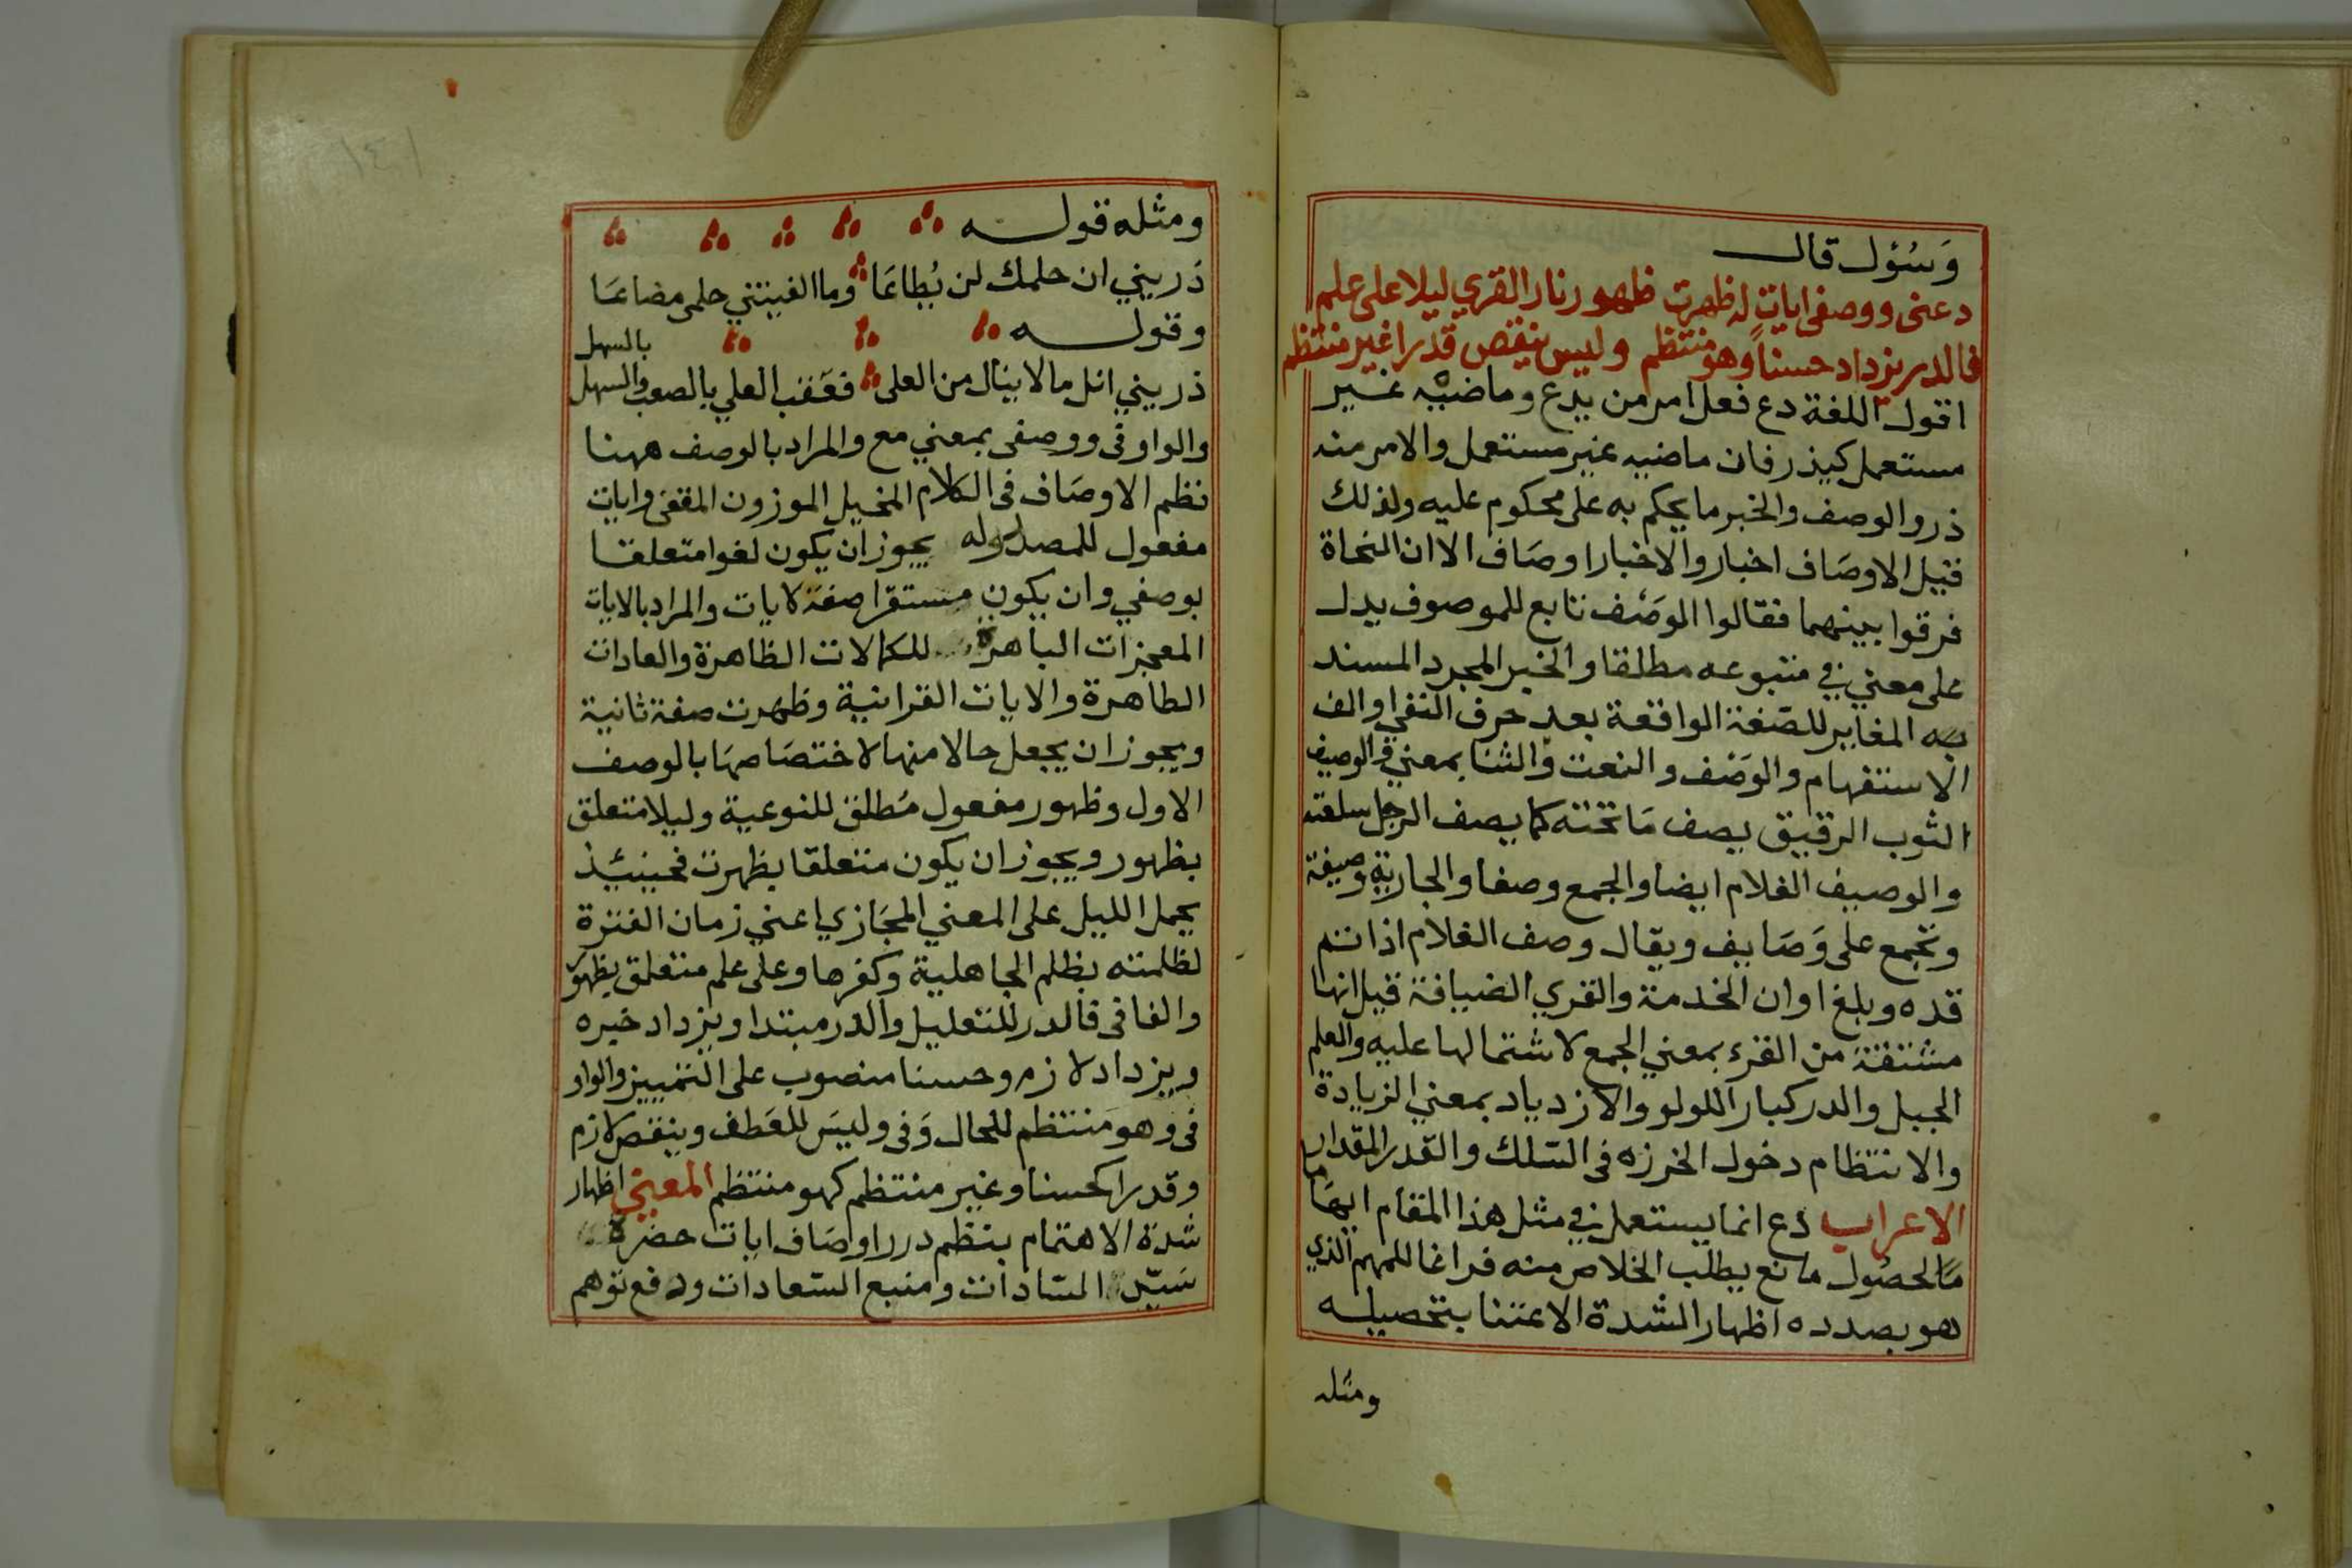 وَسُؤل قال
دعنى ووصفى ايات له ظهرت ظهور نار القري ليلا على علم
فالدر يزداد حسناً وهو منتظم وليس ينقص قدرا غير منتظم
اقول اللغة دع فعل امر من يدع وماضيه غير
مستعمل كيذر فان ماضيه غير مستعمل والامر منه
ذر والوصف والخبر ما يحكم به على محكوم عليه ولذلك
قيل الاوصَاف اخبار والاخبار اوصَاف الا ان النحاة
فرقوا بينهما فقالوا الوصَف تابع للموصوف يدل
على معني في متبوعه مطلقا والخبر المجرد المسند
به المغاير للصّفة الواقعة بعد حرف النفي او الف
الاستفهام والوَصْف والنعت والثنا بمعني والوصيف
الثوب الرقيق يصف مَا تحته كما يصف الرجل سلعته
والوصيف الغلام ايضا والجمع وصفا والجارية وصيفة
وتجمع على وَصَايف ويقال وصف الغلام اذا تم
قده وبلغ اوان الخدمة والقري الضيافة قيل انها
مشتقة من القرء بمعني الجمع لاشتمالها عليه والعلم
الجبل والدر كبار اللولو والازدياد بمعني الزيادة
والانتظام دخول الخرزه فى السّلك والقدر المقدار
الاعراب دع انما يستعمل في مثل هذا المقام ايهَاما
مَا لحصُول مانع يطلب الخلاص منه فراغا للمهم الذي
هو بصدده اظهار الشدة الاعتنا بتحصيله
ومثله
ومثله قوله
ذَريني ان حلمك لن يُطاعَا وما الفيتني حلمى مضاعَا
وقوله
بالسهل
ذريني انل ما لا ينال من العلى فعَقب العلي بالصعب والسهل
والواو فى ووصفى بمعني مع والمراد بالوصف ههنا
نظم الاوصَاف فى الكلام المخيل الموزون المقفى وايات
مفعول للمصدر وله يجوز ان يكون لغوا متعلقا
بوصفي وان يكون مستقرا صفة لايات والمراد بالايات
المعجزات الباهرة للكمالات الظاهرة والعادات
الطاهرة والايات القرانية وظهرت صفة ثانية
ويجوز ان يجعل حالا منها لاختصَاصهَا بالوصف
الاول وظهور مفعول مُطلق للنوعية وليلا متعلق
بظهور ويجوز ان يكون متعلقا بظهرت فحينئيذ
يحمل الليل على المعني المجَازي اعني زمان الفترة
لظلمته بظلم الجاهلية وكفرها وعلى علم متعلق بظهور
والفا فى فالدر للتعليل والدر مبتدا ويزداد خبره
ويزداد لازم وحسنا منصوب على التمييز والواو
فى وهو منتظم للحال وَفى وليسَ للعَطف وينقص لازم
وقدرا كحسنا وغير منتظم كهو منتظم المعني اظهار
شدة الاهتمام بنظم درر اوصَاف ايات حضرة
سَيّد السّادات ومنبع السّعادات ودفع توهم